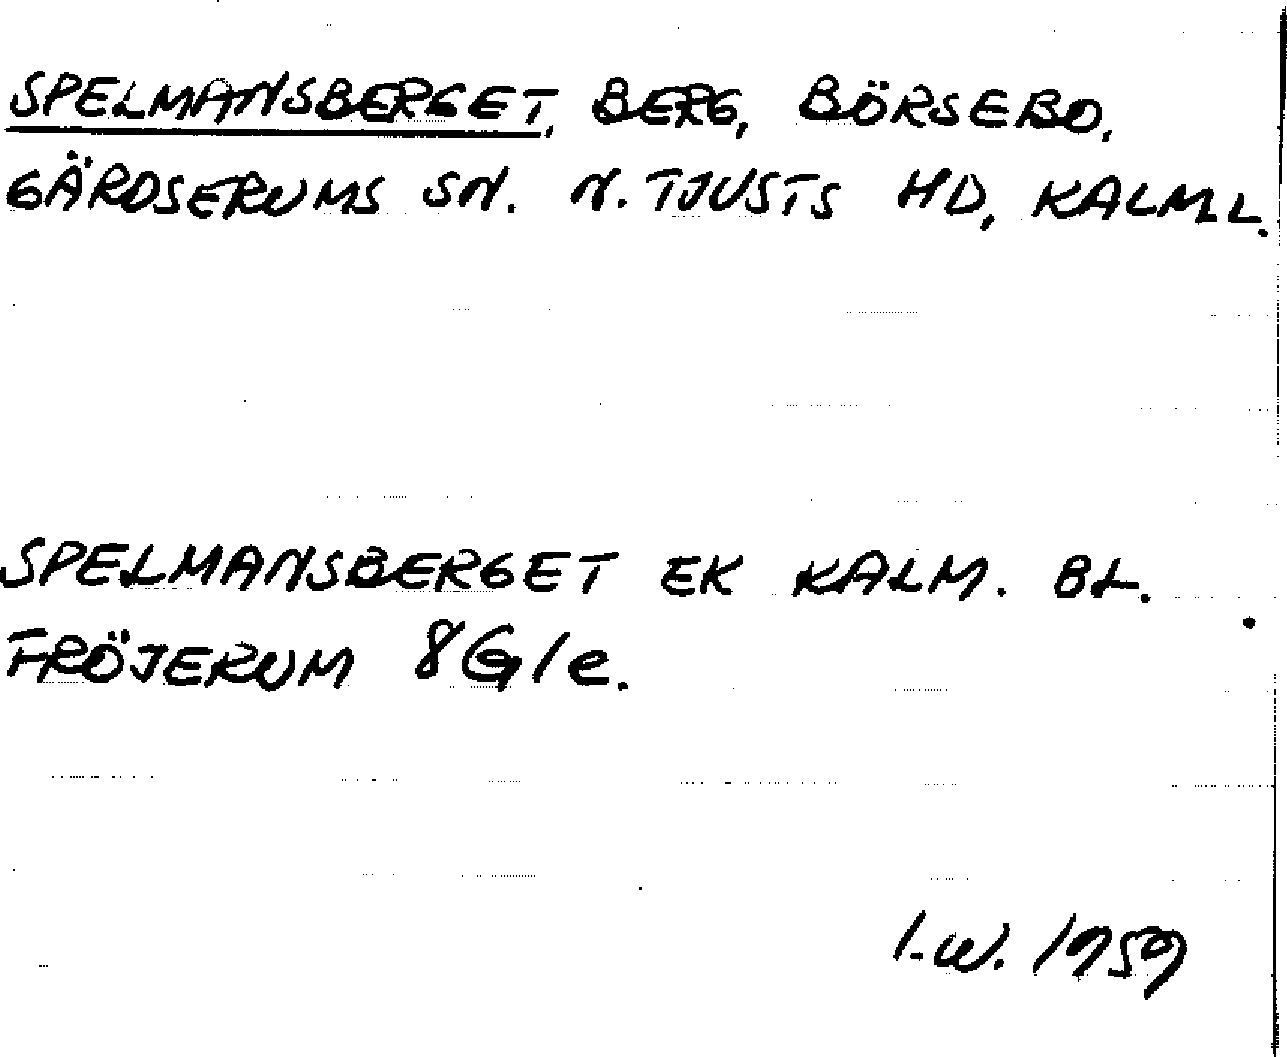 SPELMANSBERGET, BERG, BÖRSEBO,
GÄRDSERUMS SN. N. TJUSTS HD, KALM.L.
SPELMANSBERGET EK KALM. BL.
FRÖJERUM 8G/e.
I.W. 1959